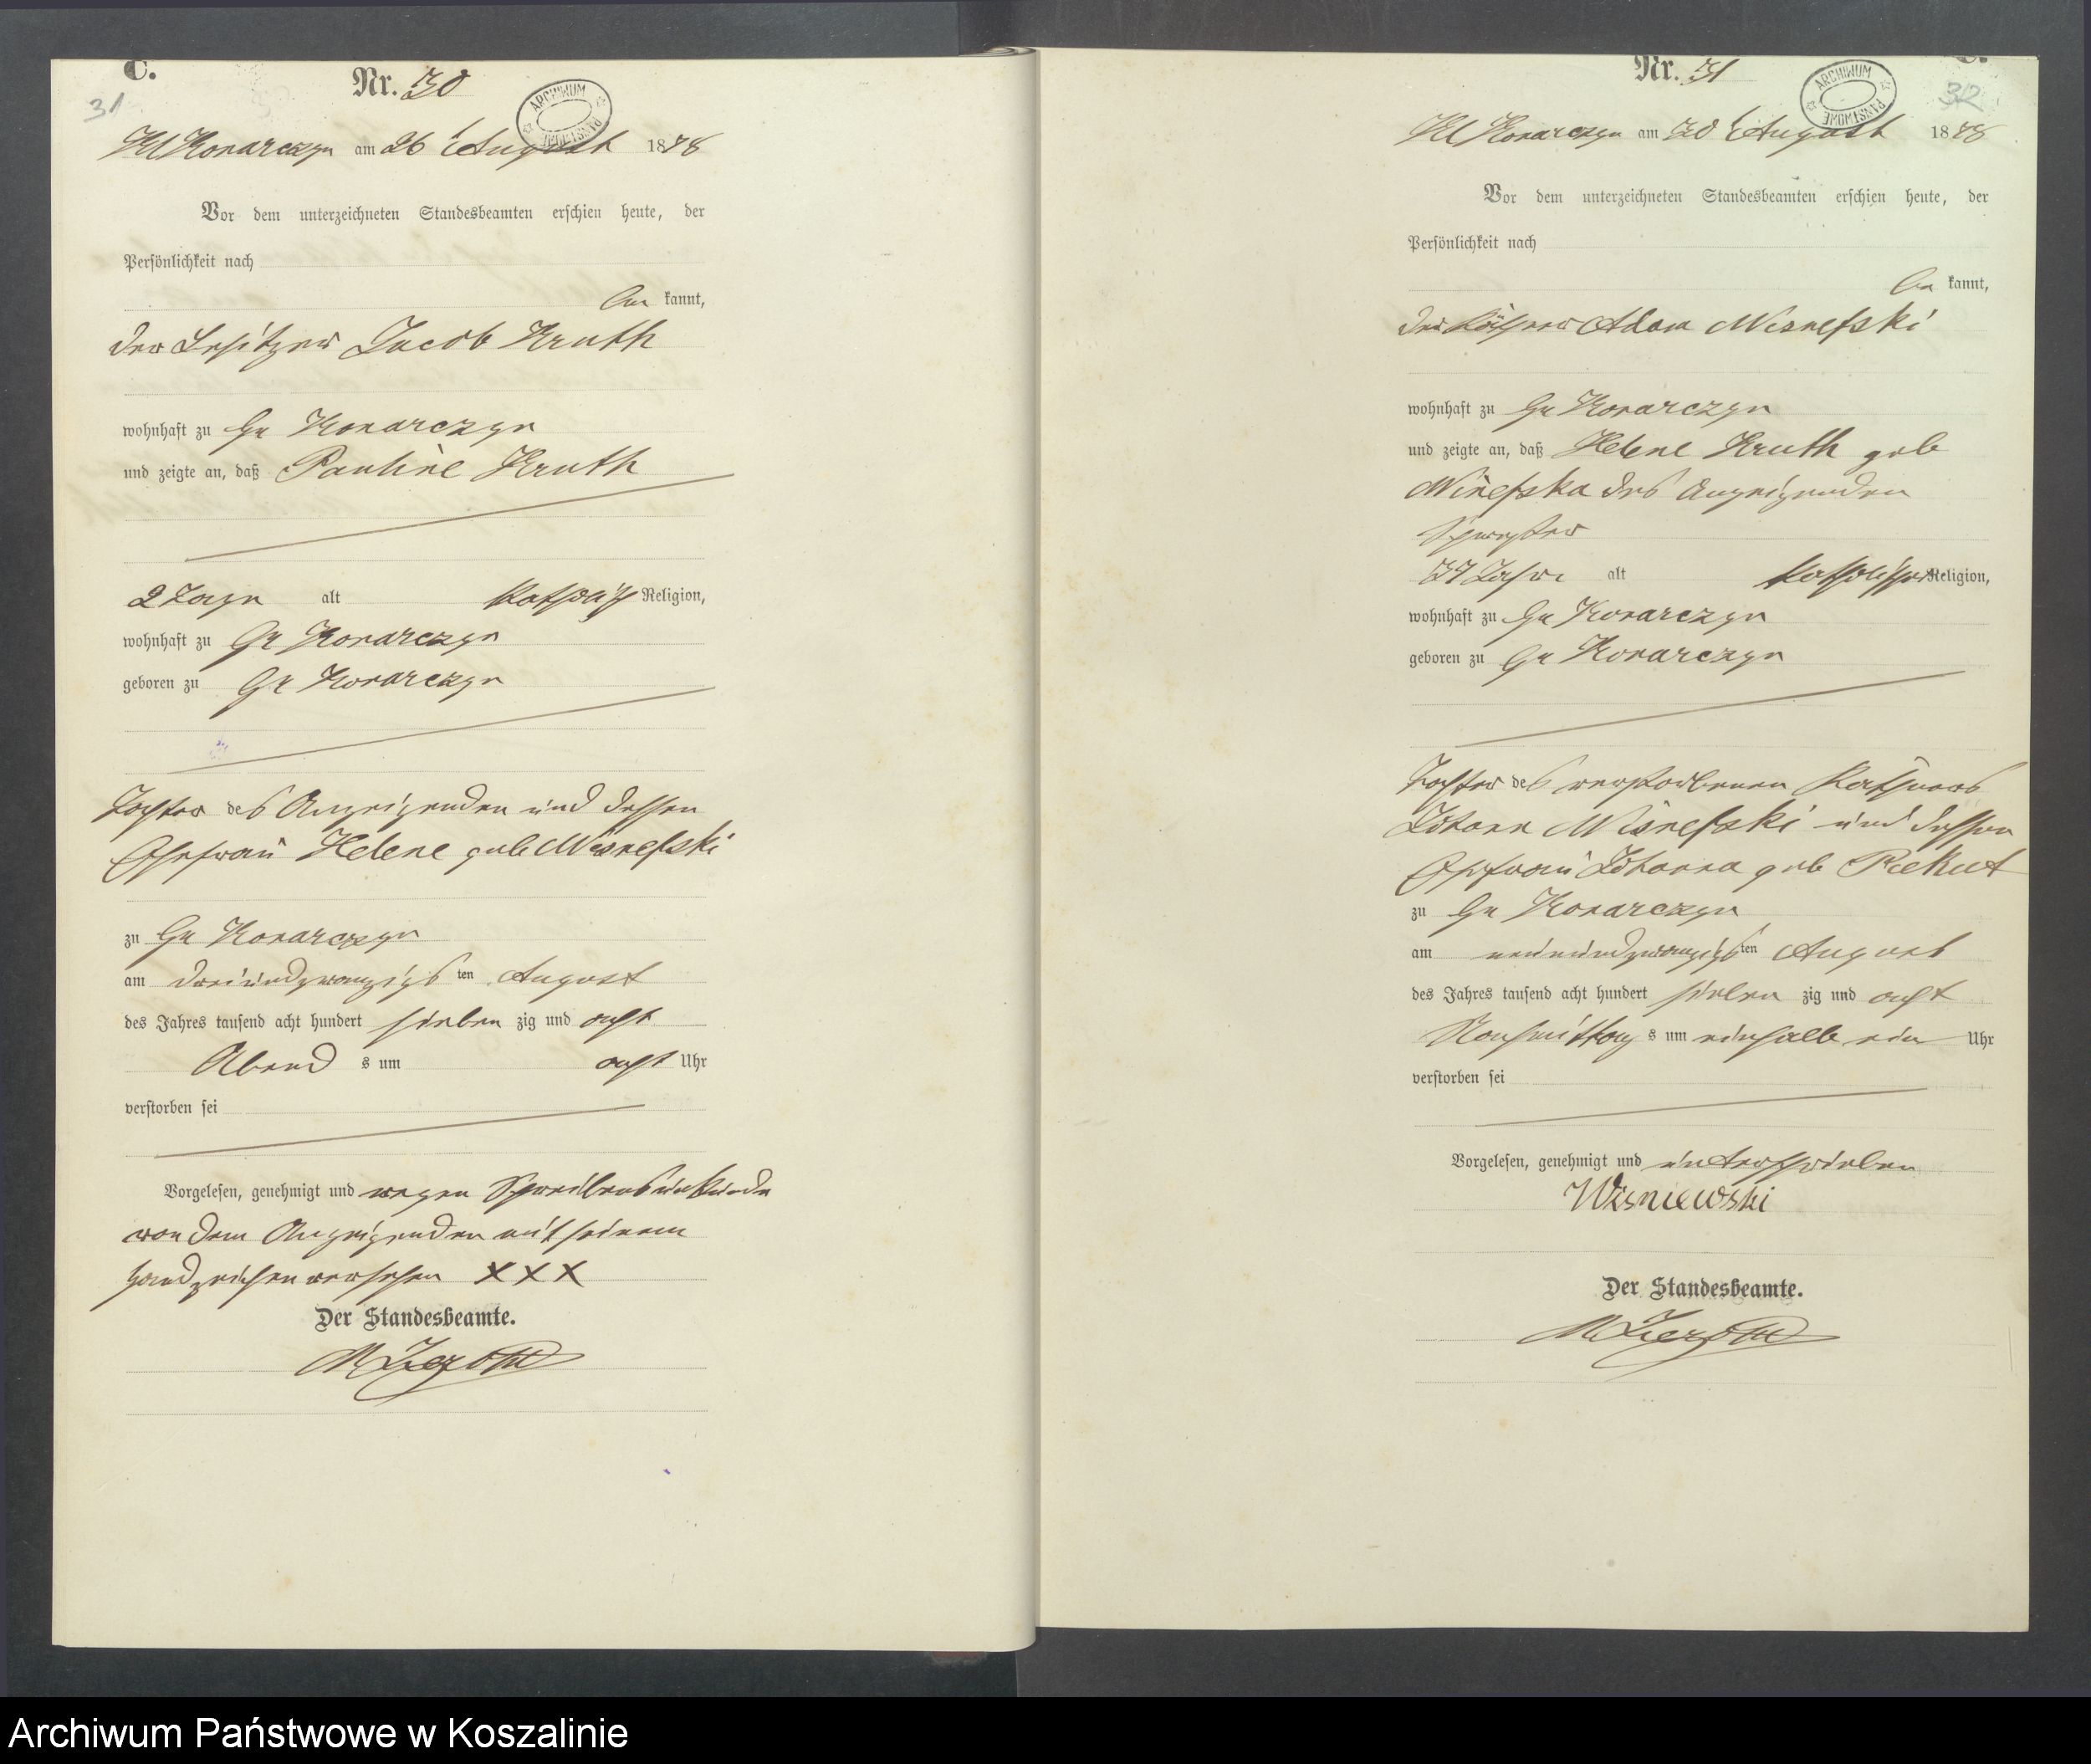 C.
Nr. 30
31
ARCHIWUM PAŃSTWOWE
Kl Konarczyn am 26 August 1878
Vor dem unterzeichneten Standesbeamten erschien heute, der
Persönlichkeit nach
be kannt,
der Besitzer Jacob Kruth
wohnhaft zu Gr Konarczyn
und zeigte an, daß Pauline Kruth
2 Tage alt katholisch Religion,
wohnhaft zu Gr Konarczyn
geboren zu Gr Konarczyn
Tochter des Anzeigenden und dessen
Ehefrau Helene geb Wisnefski
zu Gr Konarczyn
am dreiundzwanzigsten August
des Jahres tausend acht hundert sieben zig und acht
Abend s um acht Uhr
verstorben sei
Vorgelesen, genehmigt und wegen Schreibensunkunde
von dem Anzeigenden mit seinem
Handzeichen versehen XXX
Der Standesbeamte.
Nr. 31
ARCHIWUM PAŃSTWOWE
32
Kl Konarczyn am 30 August 1878
Vor dem unterzeichneten Standesbeamten erschien heute, der
Persönlichkeit nach
be kannt,
der Käthner Adam Wisnefski
wohnhaft zu Gr Konarczyn
und zeigte an, daß Helene Kruth geb
Winefska des Anzeigenden
Schwester
37 Jahre alt katholischer Religion,
wohnhaft zu Gr Konarczyn
geboren zu Gr Konarczyn
Tochter des verstorbenen Kathners
Johann Wisnefski und dessen
Ehefrau Johanna geb
zu Gr Konarczyn
am neunundzwanzigsten August
des Jahres tausend acht hundert sieben zig und acht
Nachmittag s um einhalb ein Uhr
verstorben sei
Vorgelesen, genehmigt und unterschrieben
Wisniewski
Der Standesbeamte.
Archiwum Państwowe w Koszalinie